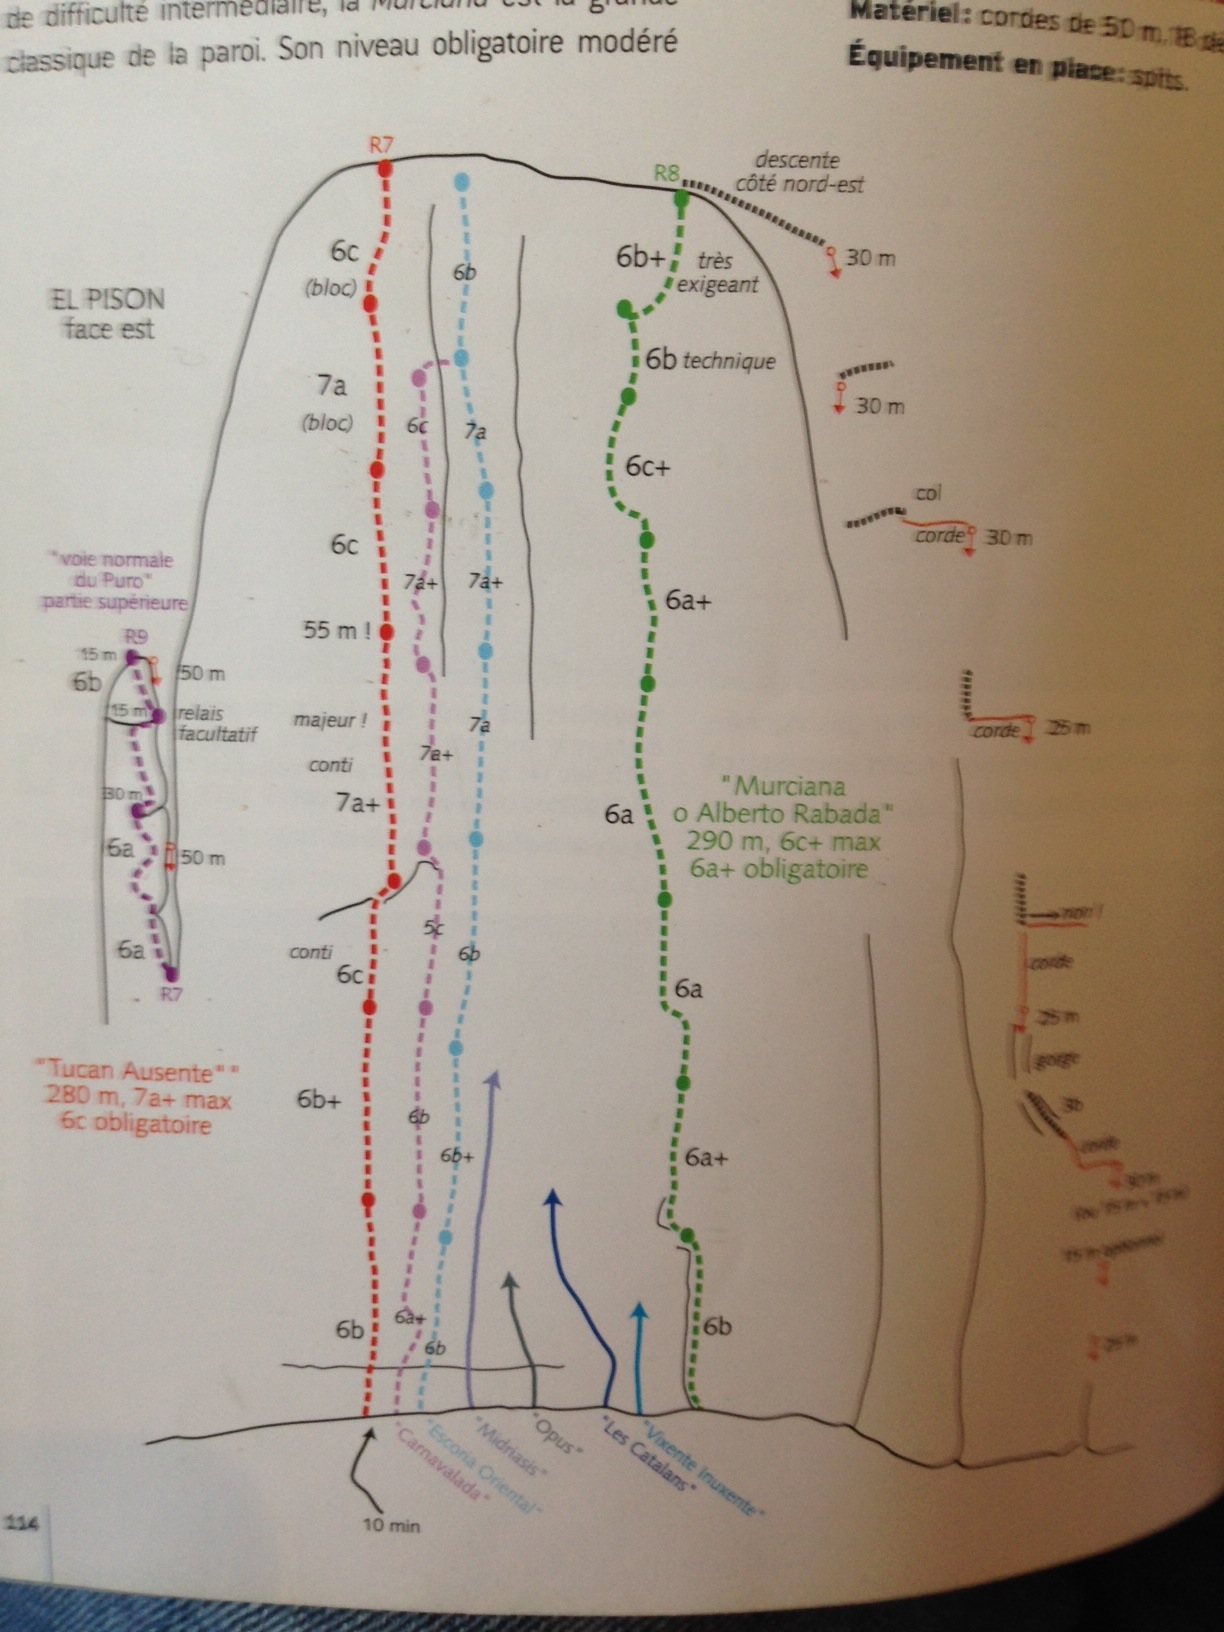 de difficulté intermédiaire, la Murciana est la grande
classique de la paroi. Son niveau obligatoire modéré
Matériel: cordes de 50 m, 18
Équipement en place: spits.
EL PISON
face est
R7
R8
descente
côté nord-est
30 m
6c
(bloc)
6b
6b+
très
exigeant
7a
(bloc)
6c
7a
6b technique
30 m
6c+
col
corde
30 m
6c
7a+
7a+
6a+
55 m !
majeur !
conti
7a+
7a+
7a
6a
"voie normale
du Puro"
partie supérieure
R9
15 m
6b
50 m
15 m
relais
facultatif
30 m
6a
50 m
6a
R7
corde
25 m
"Murciana
o Alberto Rabada"
290 m, 6c+ max
6a+ obligatoire
conti
6c
5c
6b
6a
non !
corde
25 m
gorge
3b
corde
30 m
"Tucan Ausente" "
280 m, 7a+ max
6c obligatoire
6b+
6b
6b+
6a+
15 m optionnel
25 m
6b
6a+
6b
6b
"Carnavalada"
"Escoria Oriental"
"Midriasis"
"Opus"
"Les Catalans"
"Vixente Inuxente"
10 min
114